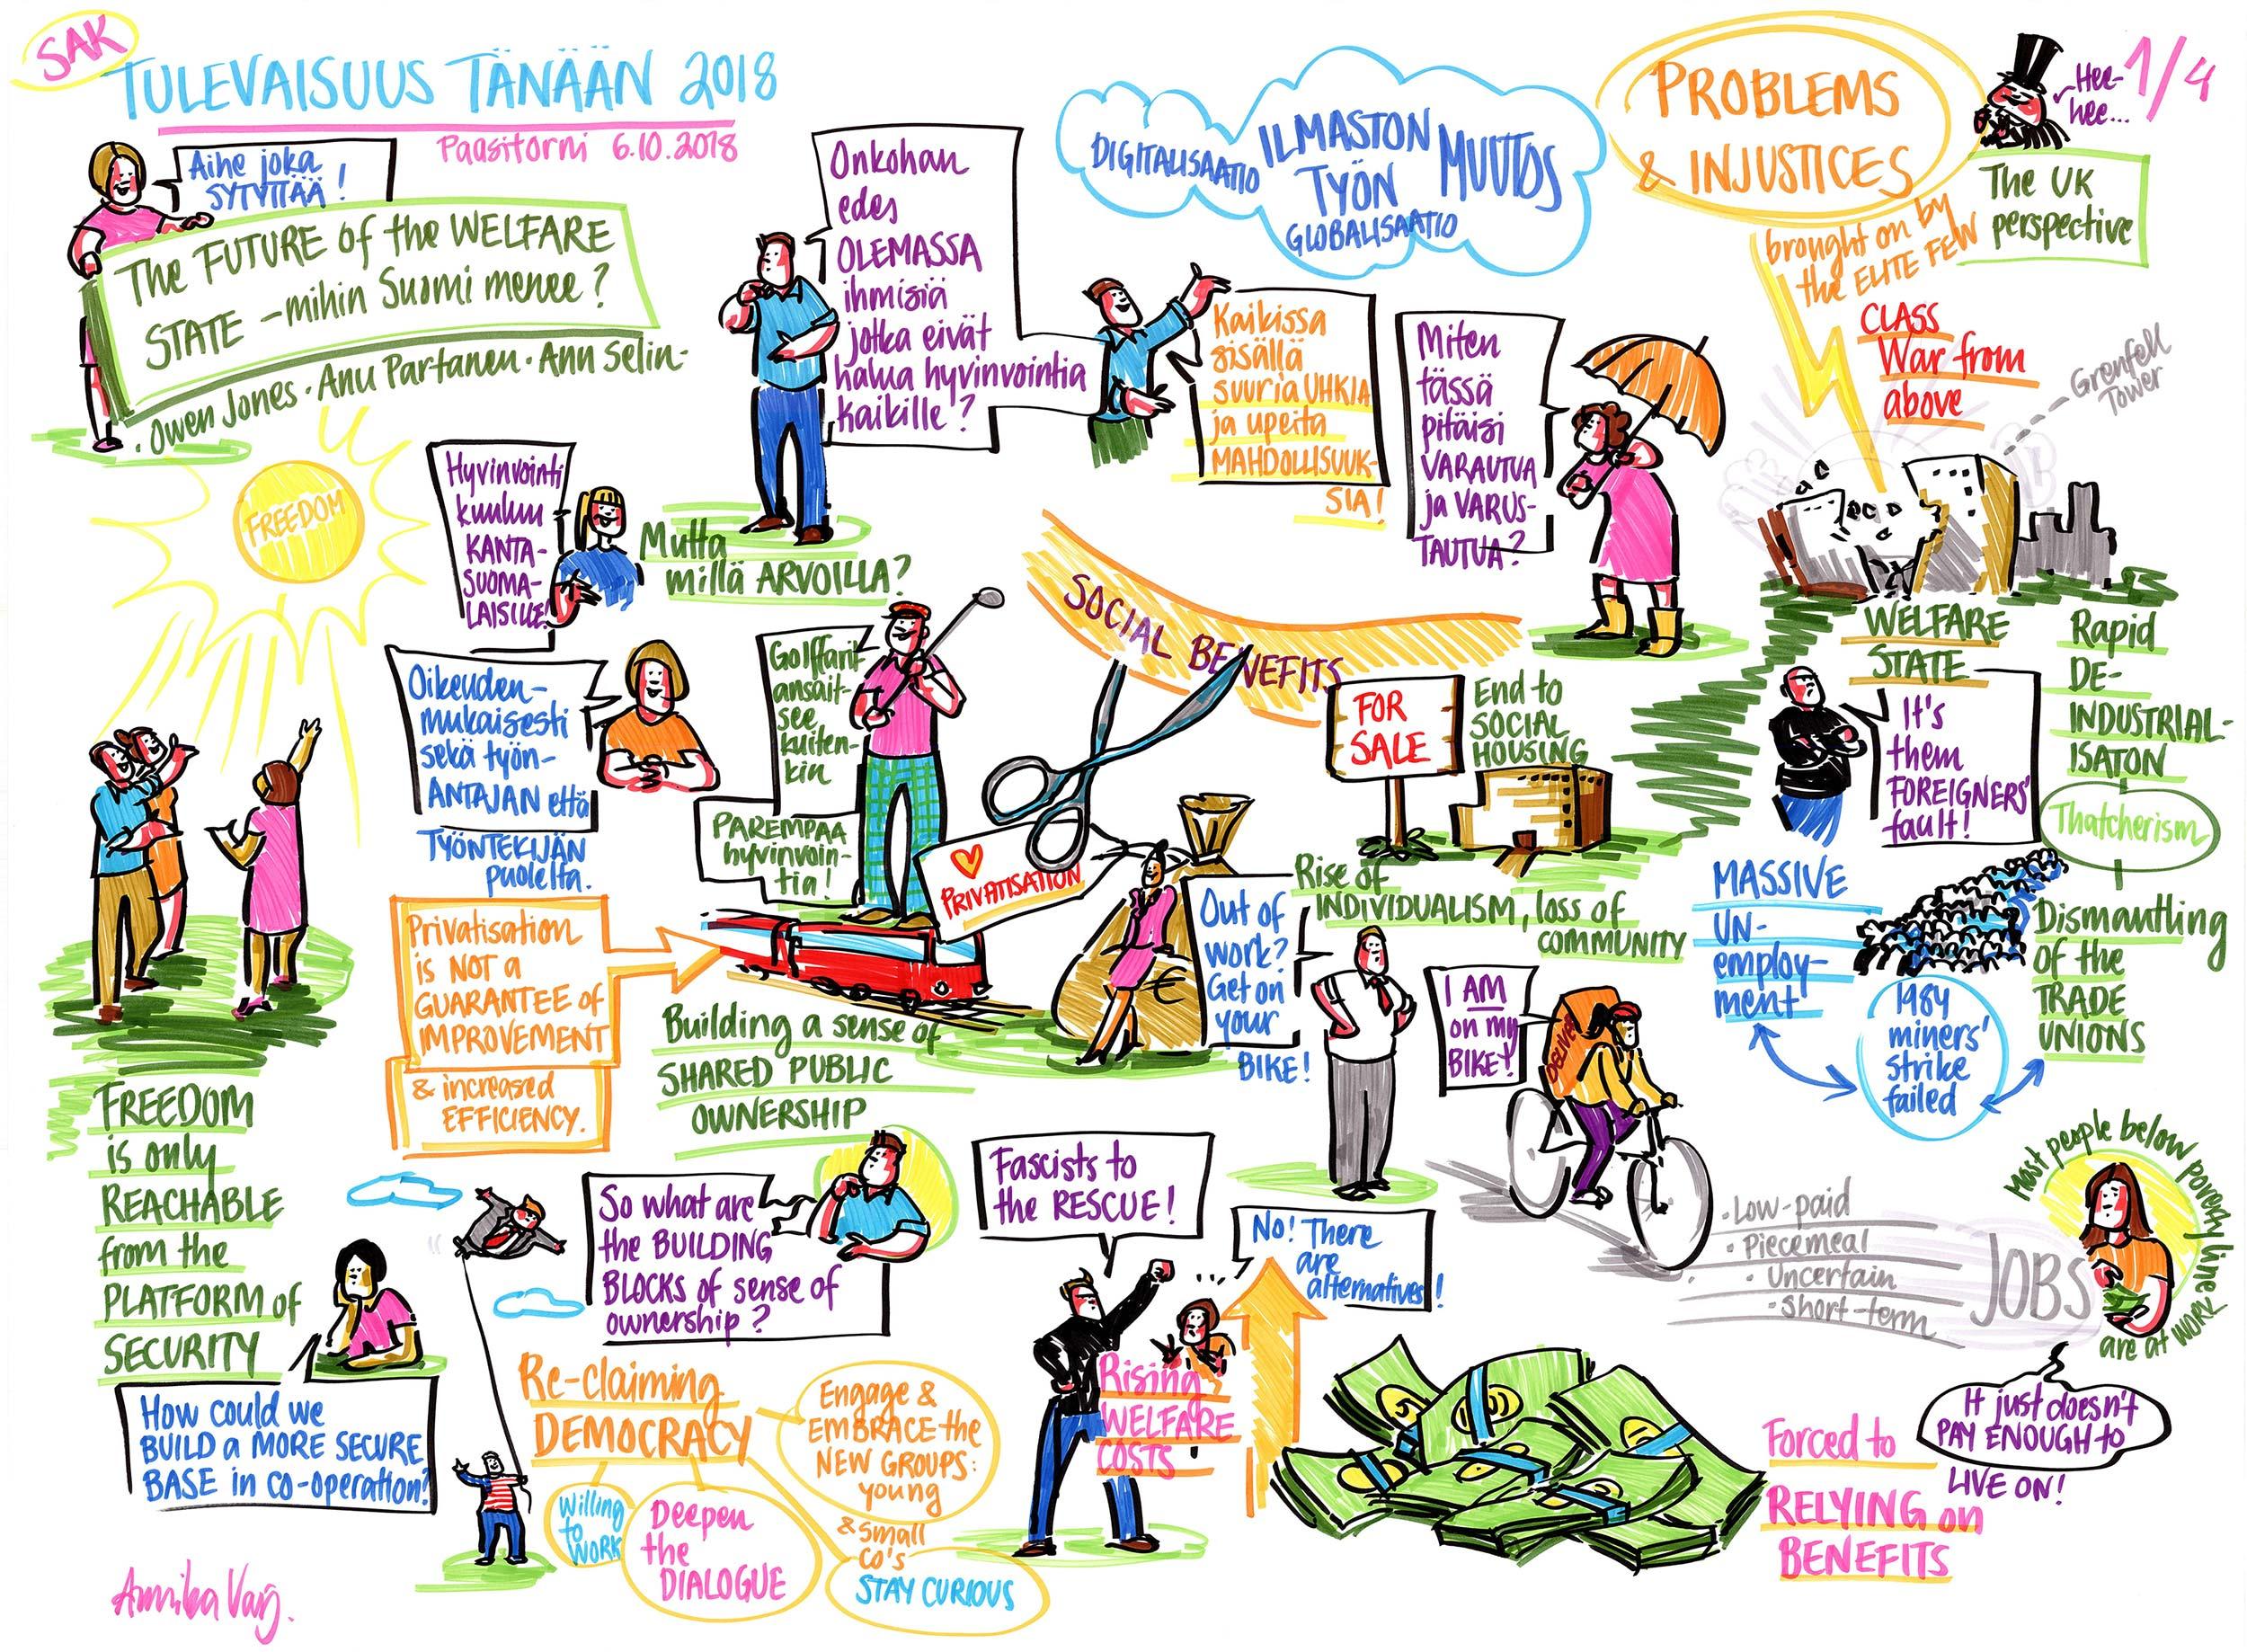 SAK
TULEVAISUUS TÄNÄÄN 2018
Paasitorni 6.10.2018
Aihe joka
SYTYTTÄÄ!
The FUTURE of the WELFARE
STATE - mihin Suomi menee?
· Owen Jones · Anu Partanen · Ann Selin -
Onkohan
edes
OLEMASSA
ihmisiä
jotka eivät
halua hyvinvointia
kaikille?
DIGITALISAATIO
ILMASTON
TYÖN
MUUTOS
GLOBALISAATIO
Kaikissa
sisällä
suuria UHKIA
ja upeita
MAHDOLLISUUK-
SIA!
Miten
tässä
pitäisi
VARAUTUA
ja VARUS-
TAUTUA?
PROBLEMS
& INJUSTICES
brought on by
the ELITE FEW
Hee-
hee...
1/4
The UK
perspective
CLASS
War from
above
Grenfell
Tower
WELFARE
STATE
Rapid
DE-
INDUSTRIAL-
ISATON
Thatcherism
Dismantling
of the
TRADE
UNIONS
It's
them
FOREIGNERS'
fault!
MASSIVE
UN-
employ-
ment
1984
miners'
strike
failed
FREEDOM
Hyvinvointi
kuuluu
KANTA-
SUOMA-
LAISILLE!
Mutta
millä ARVOILLA?
Oikeuden-
mukaisesti
sekä työn-
ANTAJAN että
TYÖNTEKIJÄN
puolelta.
Golffarit
ansait-
see
kuiten-
kin
PAREMPAA
hyvinvoin-
tia!
SOCIAL BENEFITS
FOR
SALE
End to
SOCIAL
HOUSING
PRIVATISATION
€
Rise of
INDIVIDUALISM, loss of
COMMUNITY
Out of
work?
Get on
your
BIKE!
I AM
on my
BIKE!
Privatisation
is NOT a
GUARANTEE of
IMPROVEMENT
& increased
EFFICIENCY.
Building a sense of
SHARED PUBLIC
OWNERSHIP
FREEDOM
is only
REACHABLE
from the
PLATFORM of
SECURITY
How could we
BUILD a MORE SECURE
BASE in co-operation?
So what are
the BUILDING
BLOCKS of sense of
ownership?
Fascists to
the RESCUE!
No! There
are
alternatives!
Rising
WELFARE
COSTS
Re-claiming
DEMOCRACY
Willing
to
WORK
Deepen
the
DIALOGUE
Engage &
EMBRACE the
NEW GROUPS:
young
& small
co's
STAY CURIOUS
· Low-paid
· Piecemeal
· Uncertain
· Short-term
JOBS
Most people below poverty line
are at work
It just doesn't
PAY ENOUGH to
LIVE ON!
Forced to
RELYING on
BENEFITS